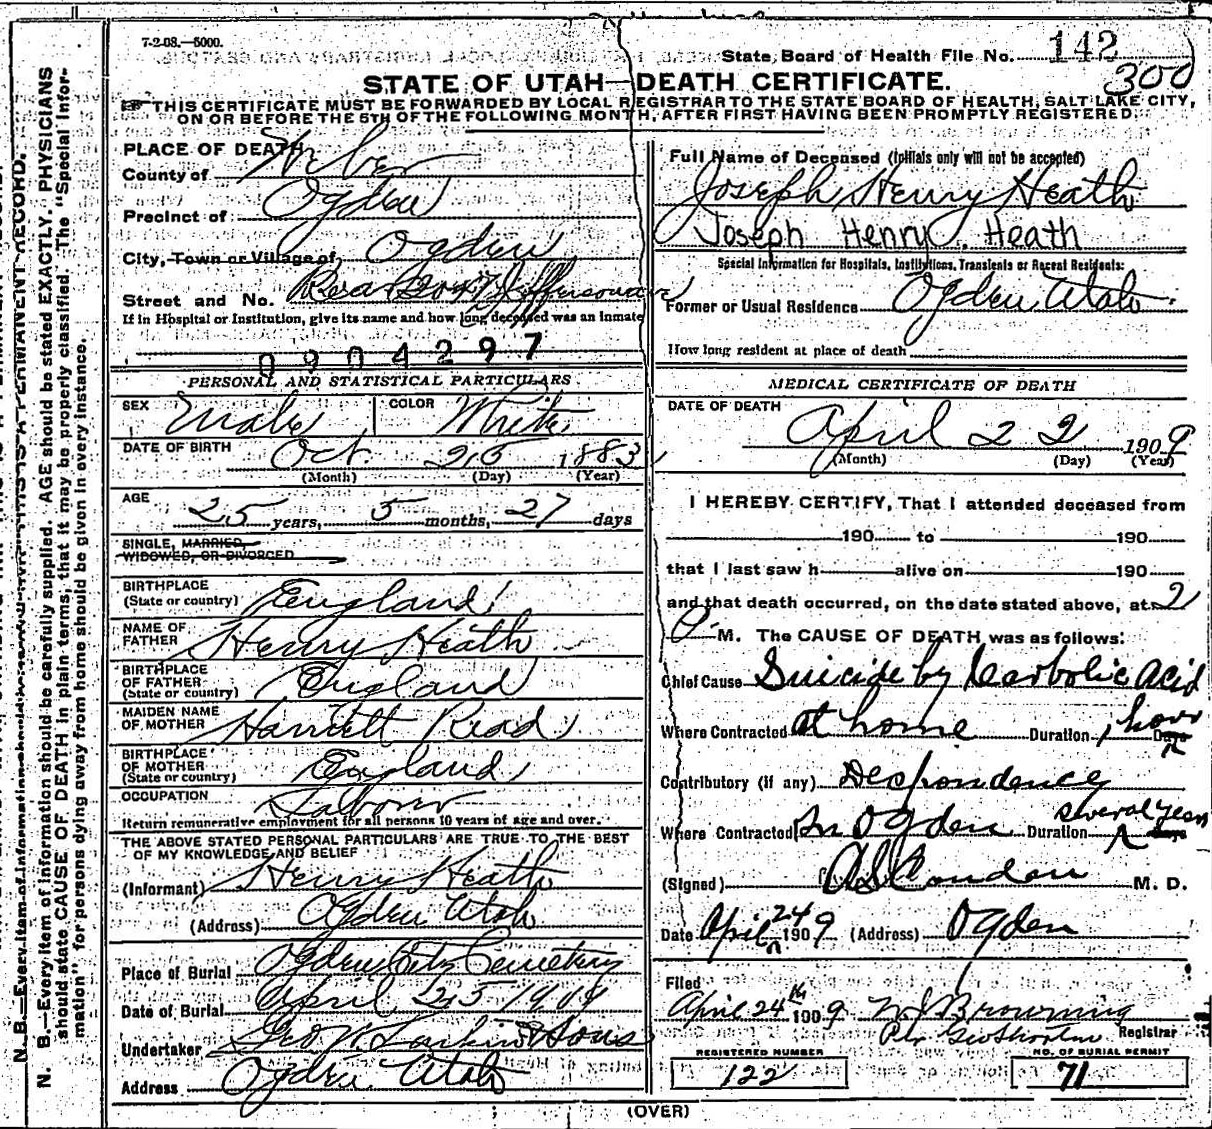 7-2-08.—5000.
State Board of Health File No. 142
300
STATE OF UTAH—DEATH CERTIFICATE.
THIS CERTIFICATE MUST BE FORWARDED BY LOCAL REGISTRAR TO THE STATE BOARD OF HEALTH, SALT LAKE CITY,
ON OR BEFORE THE 5TH OF THE FOLLOWING MONTH, AFTER FIRST HAVING BEEN PROMPTLY REGISTERED.
PLACE OF DEATH
County of Weber
Precinct of Ogden
City, Town or Village of Ogden
Street and No. Rear Jefferson ave
If in Hospital or Institution, give its name and how long deceased was an inmate
0904297
Full Name of Deceased (Initials only will not be accepted)
Joseph Henry Heath
Joseph Henry Heath
Special Information for Hospitals, Institutions, Transients or Recent Residents:
Former or Usual Residence Ogden Utah.
How long resident at place of death
PERSONAL AND STATISTICAL PARTICULARS
SEX Male COLOR White
DATE OF BIRTH Oct 25 1883
(Month) (Day) (Year)
AGE
25 years, 5 months, 27 days
SINGLE, MARRIED,
WIDOWED, OR DIVORCED
BIRTHPLACE
(State or country) England
NAME OF
FATHER Henry Heath
BIRTHPLACE
OF FATHER
(State or country) England
MAIDEN NAME
OF MOTHER Harriett Read
BIRTHPLACE
OF MOTHER
(State or country) England
OCCUPATION Laborer
Return remunerative employment for all persons 10 years of age and over.
THE ABOVE STATED PERSONAL PARTICULARS ARE TRUE TO THE BEST
OF MY KNOWLEDGE AND BELIEF
(Informant) Henry Heath
(Address) Ogden Utah
Place of Burial Ogden City Cemetery
Date of Burial April 25 1909
Undertaker Geo W. Larkin & Sons
Address Ogden Utah
MEDICAL CERTIFICATE OF DEATH
DATE OF DEATH
April 22 1909
(Month) (Day) (Year)
I HEREBY CERTIFY, That I attended deceased from
190 to 190
that I last saw h alive on 190
and that death occurred, on the date stated above, at 2
P M. The CAUSE OF DEATH was as follows:
Chief Cause Suicide by Carbolic Acid
Where Contracted at home Duration 1 hour Days
Contributory (if any) Despondency
several years
Where Contracted In Ogden Duration Days
(Signed) A S Condon M. D.
Date April 24 1909 (Address) Ogden
Filed
April 24th 1909 Browning
Per Geo Shorten Registrar
REGISTERED NUMBER
122
NO. OF BURIAL PERMIT
71
(OVER)
N. B.—Every item of information should be carefully supplied. AGE should be stated EXACTLY. PHYSICIANS
should state CAUSE OF DEATH in plain terms, that it may be properly classified. The "Special Infor-
mation" for persons dying away from home should be given in every instance.